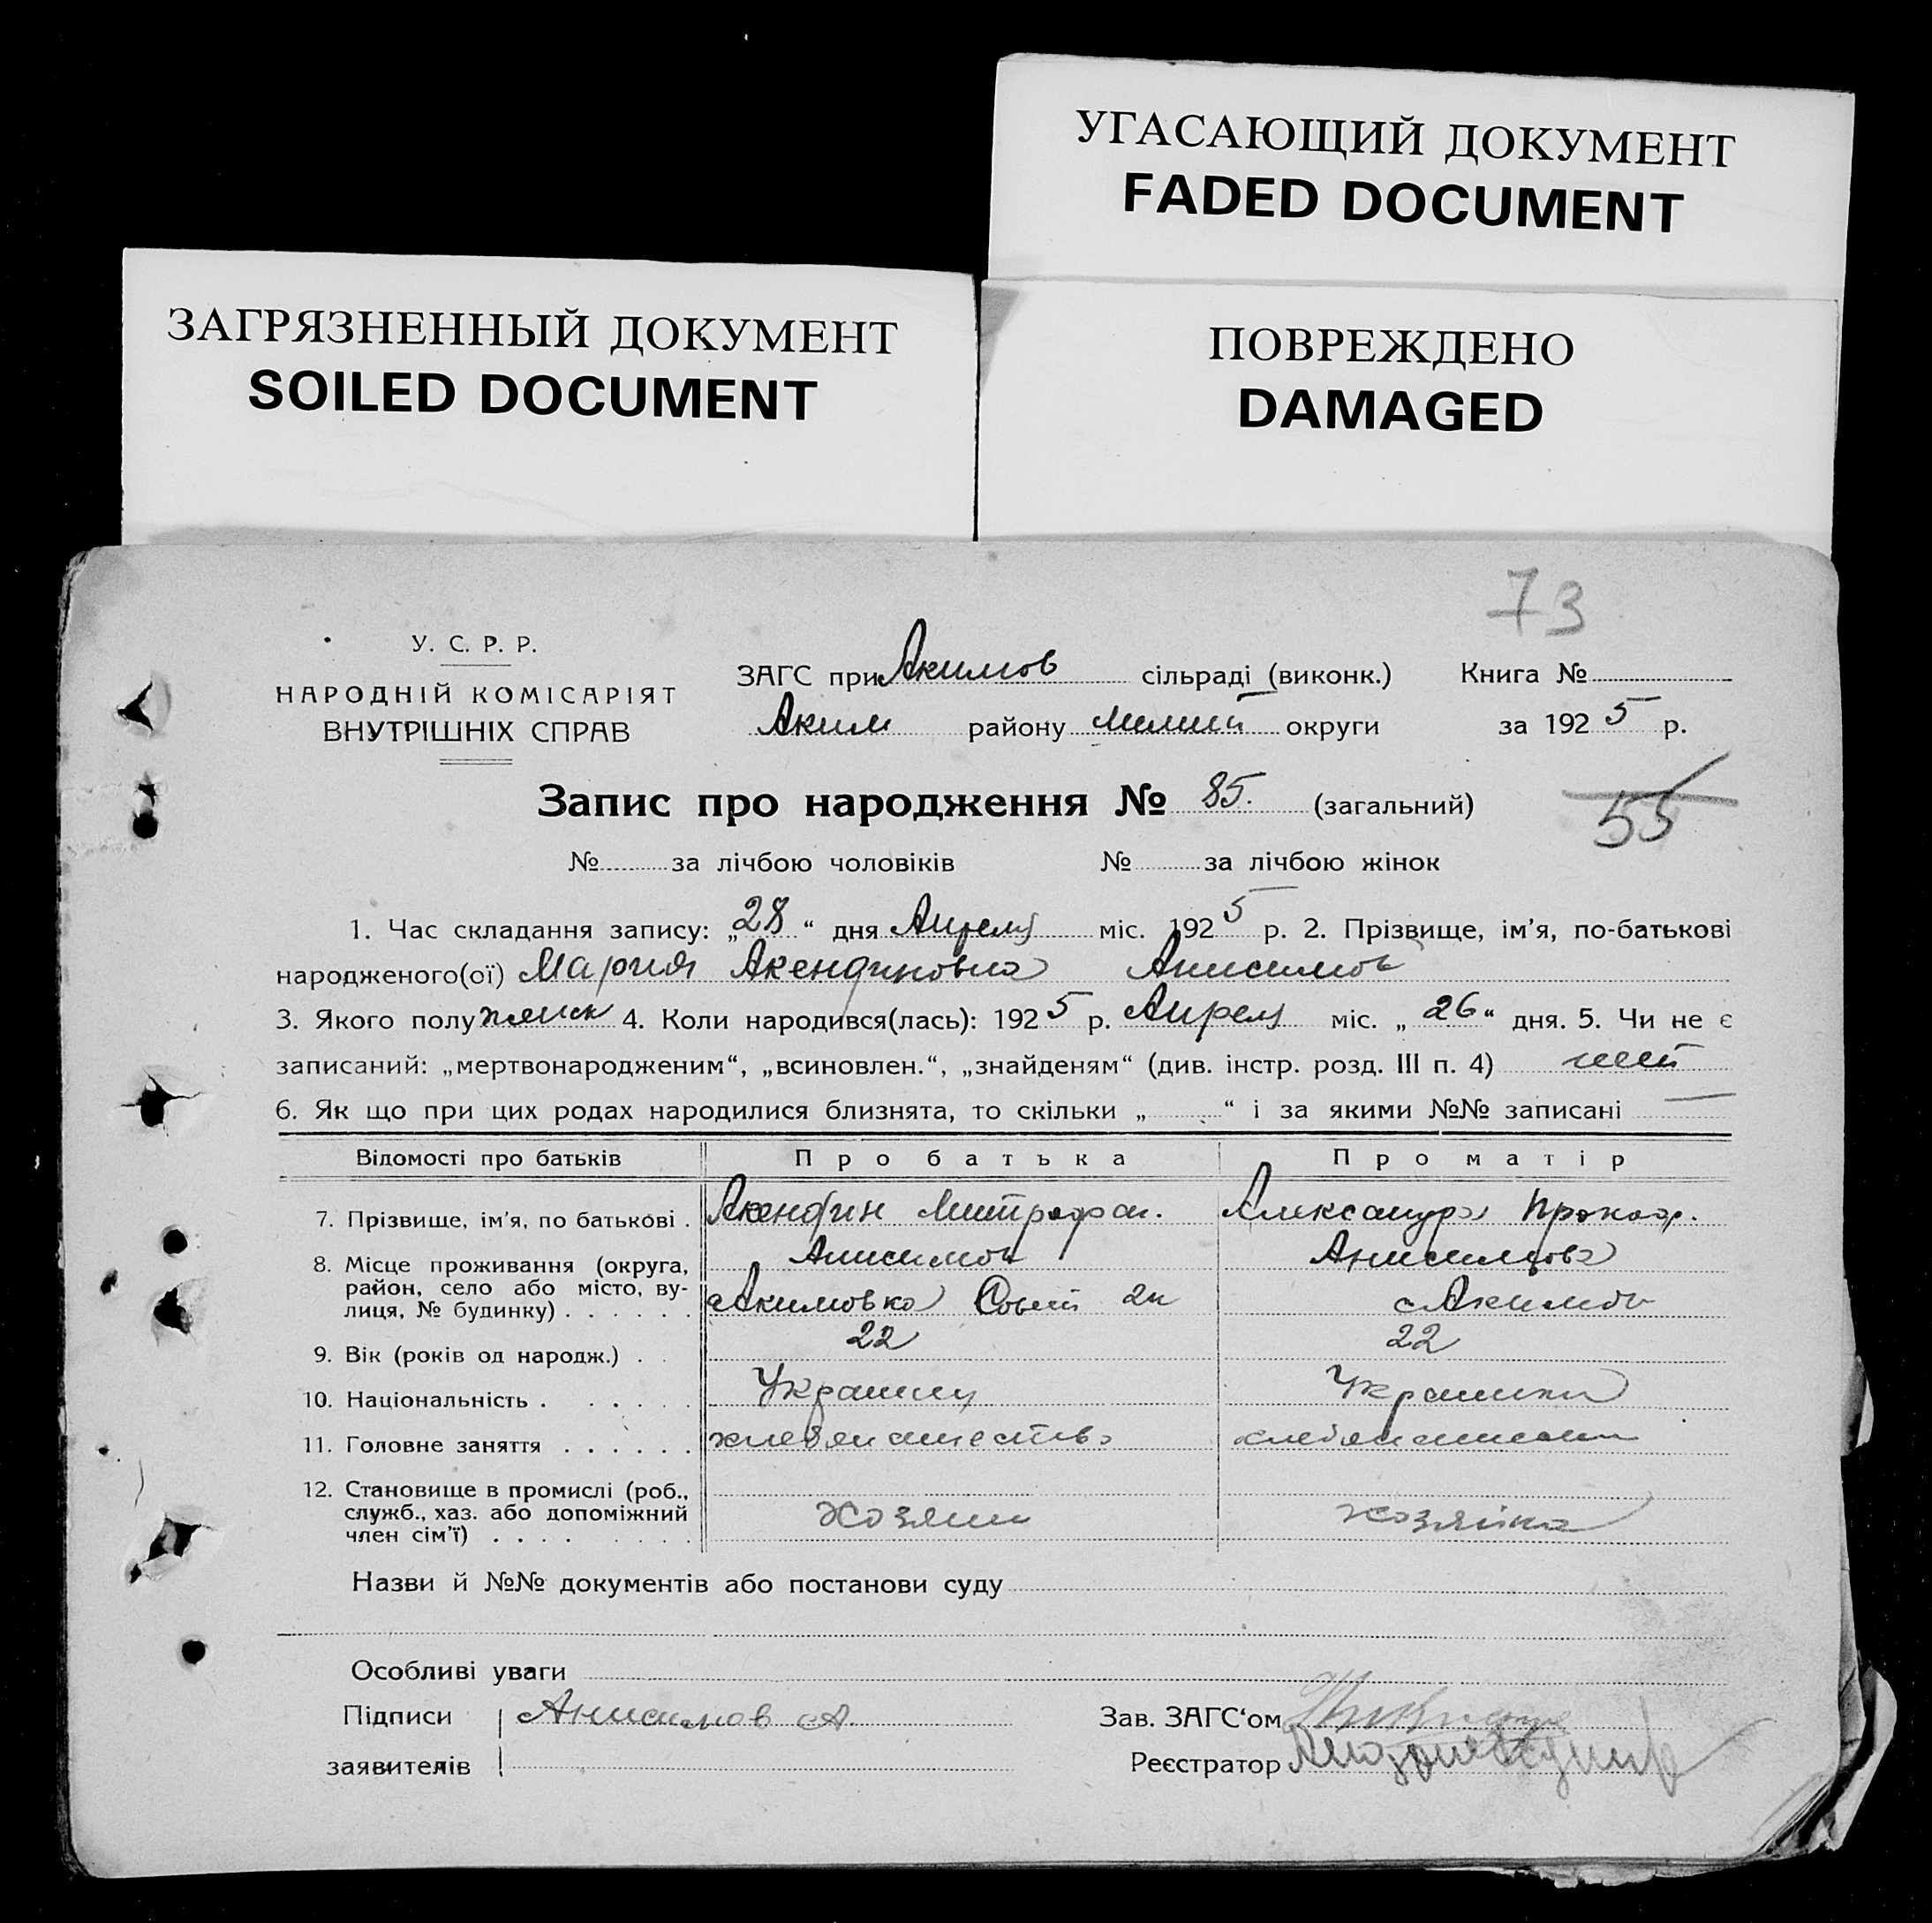 УГАСАЮЩИЙ ДОКУМЕНТ
FADED DOCUMENT
ЗАГРЯЗНЕННЫЙ ДОКУМЕНТ
SOILED DOCUMENT
ПОВРЕЖДЕНО
DAMAGED
73
У. С. Р. Р.
НАРОДНІЙ КОМІСАРІЯТ
ВНУТРІШНІХ СПРАВ
ЗАГС при Акимов сільраді (виконк.) Книга №
Аким району Мелит округи за 1925 р.
Запис про народження № 85. (загальний)
55
№ за лічбою чоловіків № за лічбою жінок
1. Час складання запису: „28“ дня Апреля міс. 1925 р. 2. Прізвище, ім’я, по-батькові
народженого(ої) Мария Акендиновна Анисимов
3. Якого полу женск 4. Коли народився(лась): 1925 р. Апреля міс. „26“ дня. 5. Чи не є
записаний: „мертвонародженим“, „всиновлен.“, „знайденям“ (див. інстр. розд. III п. 4) нет
6. Як що при цих родах народилися близнята, то скільки „ “ і за якими №№ записані —
Відомості про батьків Про батька Про матір
7. Прізвище, ім’я, по батькові . Акендин Митрофан. Александра Прокоф.
Анисимов Анисимова
8. Місце проживання (округа, район, село або місто, вулиця, № будинку) . . . . . . с Акимовка 2й с Акимов
9. Вік (років од народж.) . . 22 22
10. Національність . . . . . . Украинец Украинка
11. Головне заняття . . . . . . хлебопашество
12. Становище в промислі (роб., служб., хаз. або допоміжний член сім’ї) . . . . . . . . Хозяин хозяйка
Назви й №№ документів або постанови суду
Особливі уваги
Підписи Анисимов А. Зав. ЗАГС‘ом
заявителів Реєстратор